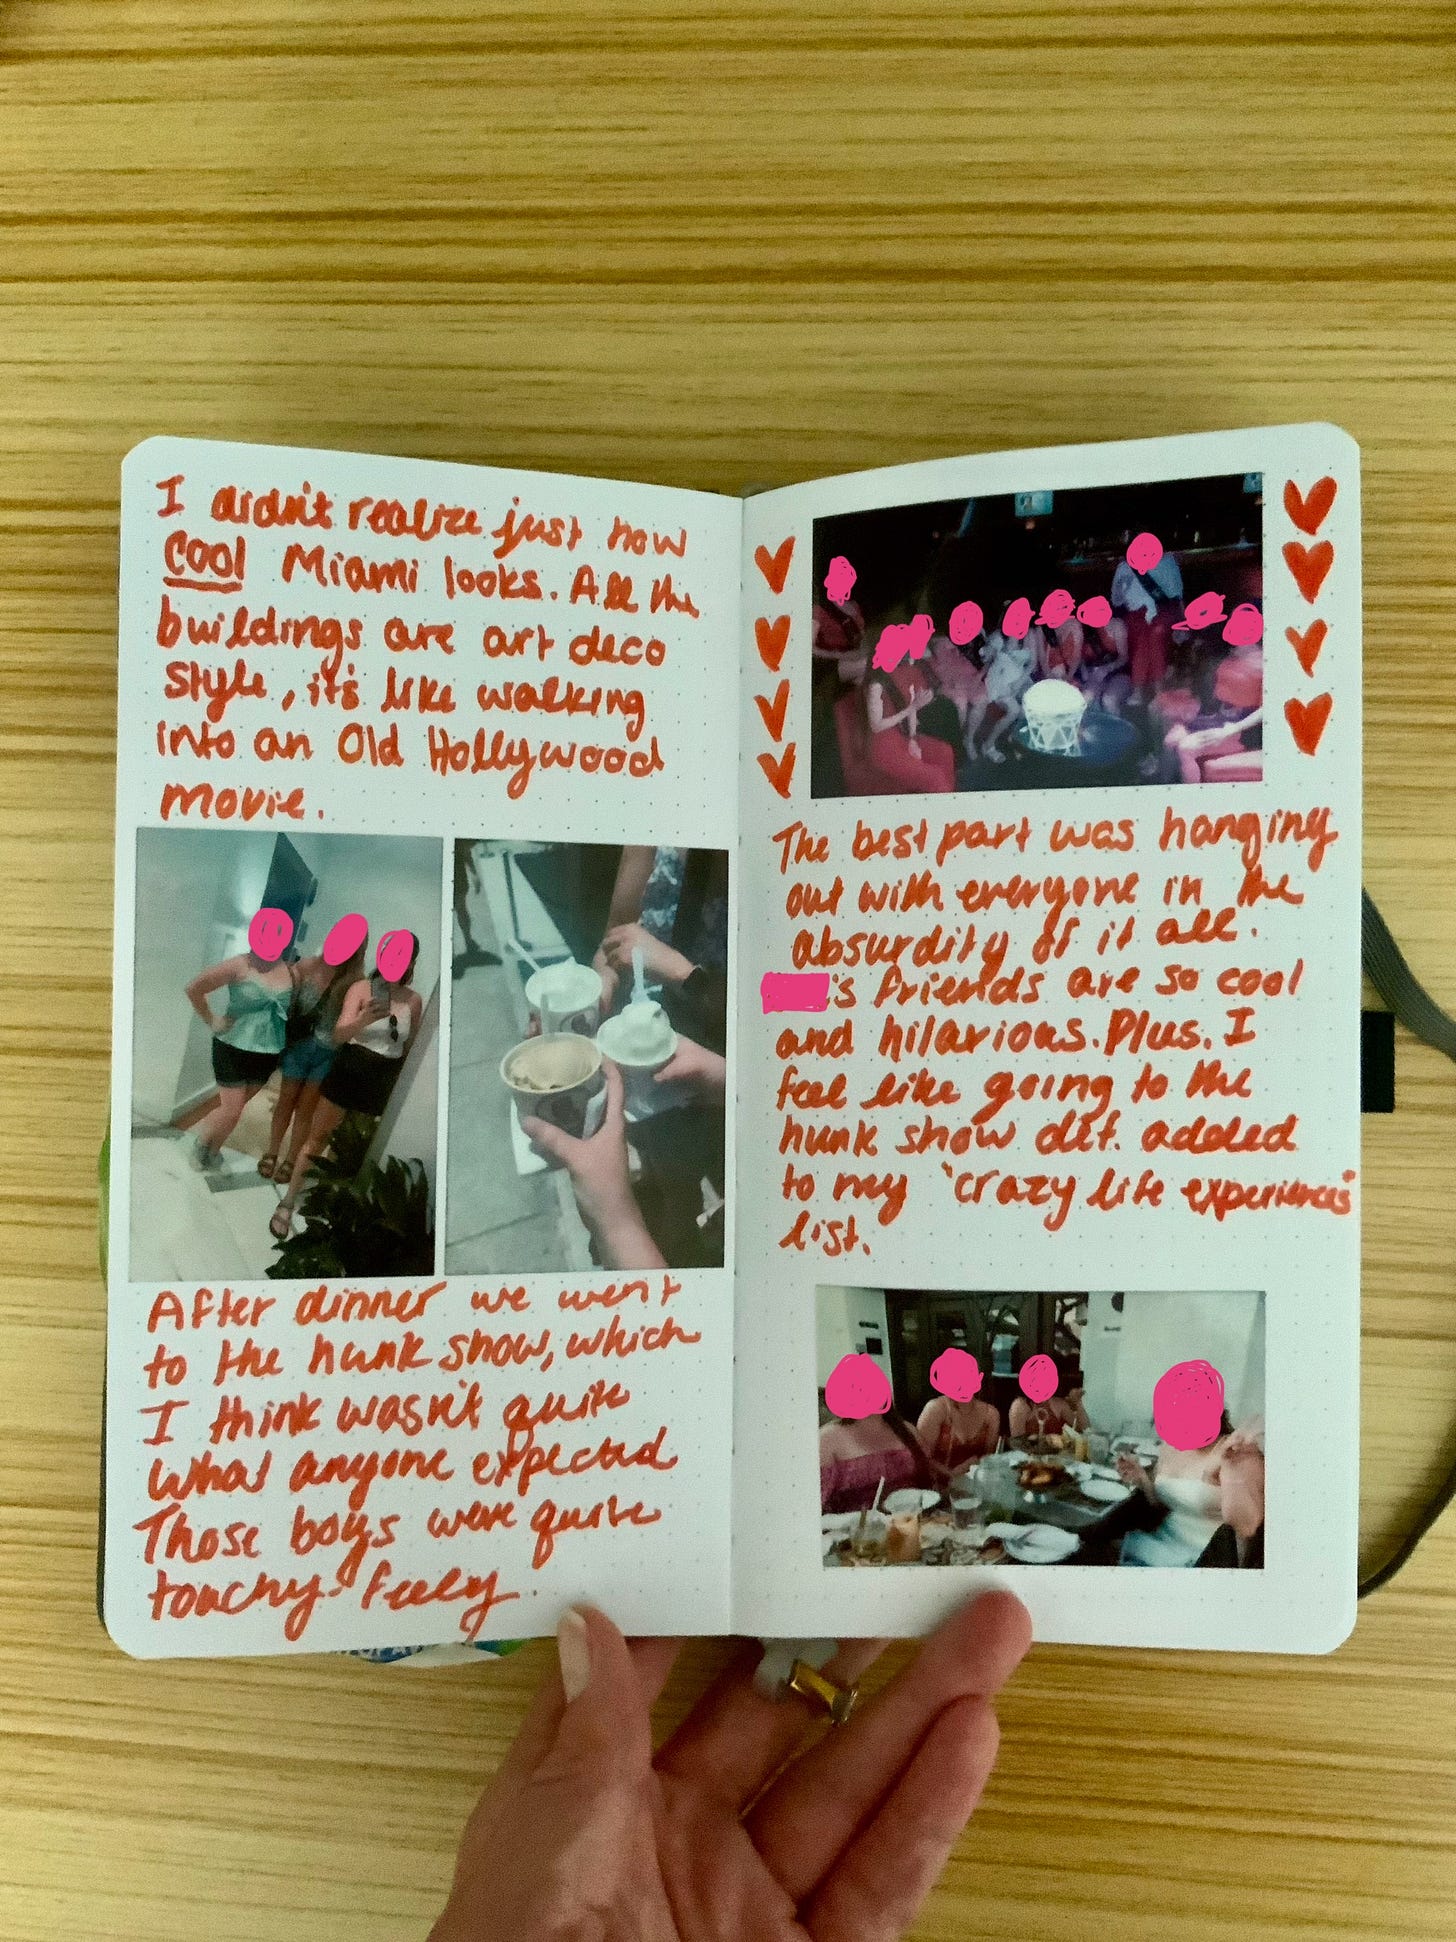 I didn't realize just how
cool Miami looks. All the
buildings are art deco
style, it's like walking
into an Old Hollywood
movie.
After dinner we went
to the hunk show, which
I think wasn't quite
what anyone expected
Those boys were quite
touchy-feely.
The best part was hanging
out with everyone in the
absurdity of it all.
's friends are so cool
and hilarious. Plus, I
feel like going to the
hunk show def. added
to my "crazy life experiences"
list.